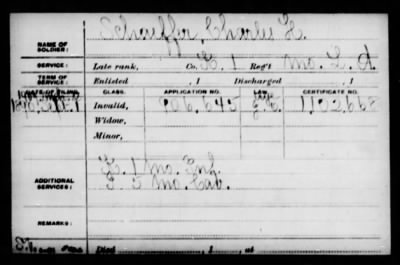 Schaeffer, Charles H.
NAME OF SOLDIER:
SERVICE: Late rank, Co. H. 1 Reg't Mo. L. A.
TERM OF SERVICE: Enlisted , 1 Discharged , 1
DATE OF FILING. CLASS. APPLICATION NO. LAW. CERTIFICATE NO.
Invalid, 906.645 1132.668
Widow,
Minor,
ADDITIONAL SERVICES: 1 Mo. Inf.
5 Mo. Cav.
REMARKS:
Died , 1 , at